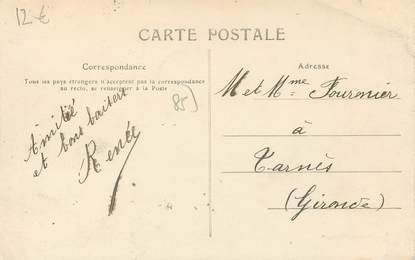 12 €
CARTE POSTALE
Correspondance
Tous les pays étrangers n'acceptent pas la correspondance
au recto, se renseigner à la Poste
85)
Amitié
et bons baisers
Renée
Adresse
M et Mme Fournier
à
Tarnès
(Gironde)